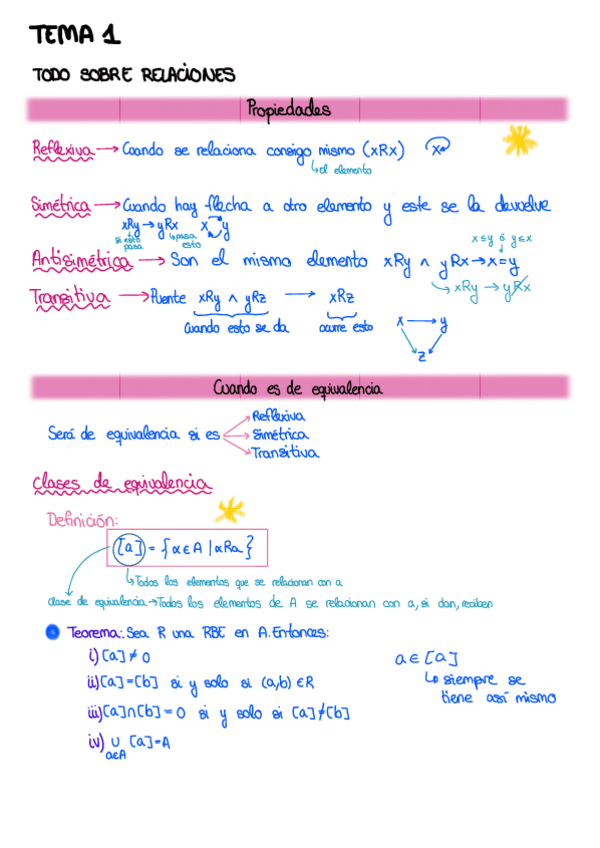 TEMA 1
TODO SOBRE RELACIONES
Propiedades
Reflexiva → Cuando se relaciona consigo mismo (xRx) x
↳ el elemento
Simétrica → Cuando hay flecha a otro elemento y este se la devuelve
xRy → yRx x y
si esto pasa ↳ pasa esto
x≤y ó y≤x
Antisimétrica → Son el mismo elemento xRy ∧ yRx → x = y
↳ xRy → yRx
Transitiva → Puente xRy ∧ yRz → xRz
Cuando esto se da ocurre esto
x → y
z
Cuando es de equivalencia
Reflexiva
Será de equivalencia si es Simétrica
Transitiva
Clases de equivalencia
Definición:
[a] = {α ∈ A | αRa}
↳ Todos los elementos que se relacionan con a
Clase de equivalencia → Todos los elementos de A se relacionan con a, si dan, reciben
Teorema: Sea R una RBE en A. Entonces:
i) [a] ≠ 0
a ∈ [a]
ii) [a] = [b] si y solo si (a,b) ∈ R
↳ siempre se
tiene así mismo
iii) [a] ∩ [b] = 0 si y solo si [a] ≠ [b]
iv) ∪ [a] = A
a∈A